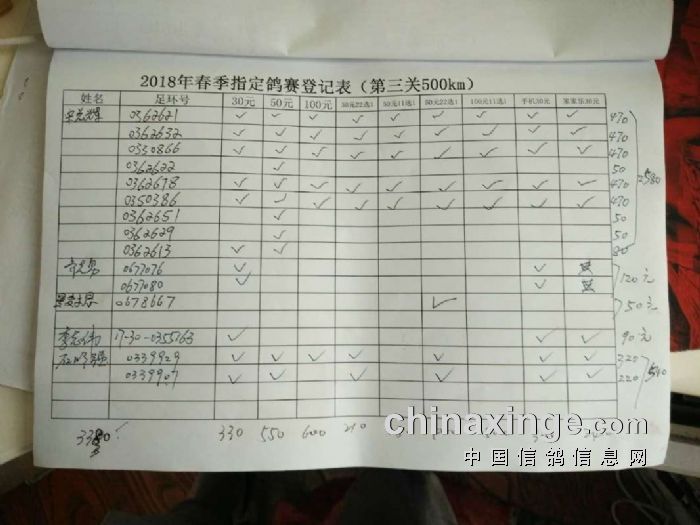 2018年春季指定鸽赛登记表（第三关500km）
姓名 足环号 30元 50元 100元 30元22选1 50元11选1 50元22选1 100元11选1 手机30元 家家乐30元
0362621 ✓ ✓ ✓ ✓ ✓ ✓ ✓ ✓ ✓ 470
0362632 ✓ ✓ ✓ ✓ ✓ ✓ ✓ ✓ ✓ 470
0350866 ✓ ✓ ✓ ✓ ✓ ✓ ✓ ✓ ✓ 470
0362622 ✓ 50
0362678 ✓ ✓ ✓ ✓ ✓ ✓ ✓ ✓ ✓ 470
0350386 ✓ ✓ ✓ ✓ ✓ ✓ ✓ ✓ ✓ 470
0362651 ✓ 50
0362629 ✓ 50
0362613 ✓ ✓ 80
2580
0677076 ✓ ✓
0677080 ✓ ✓
120元
0678667 ✓ 50元
李志伟 17-30-0355763 ✓ ✓ ✓ 90元
0339929 ✓ ✓ ✓ ✓ ✓ ✓ ✓ 320
0339907 ✓ ✓ ✓ ✓ ✓ ✓ 220
540
330 550 600 210
chinaxinge.com
中国信鸽信息网